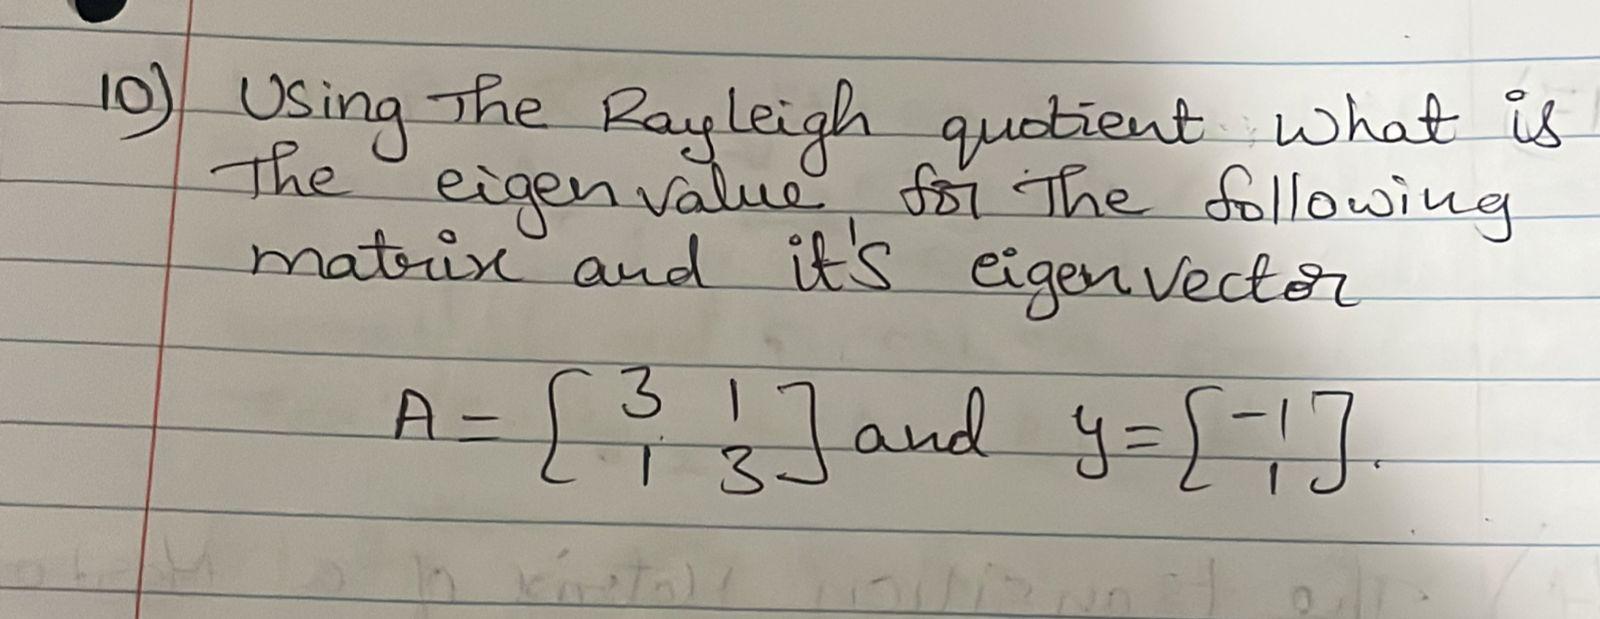 10) Using The Rayleigh quotient what is
The eigenvalue for The following
matrix and it's eigenvector
A = [ 3 1 ] and y = [ -1 ]
[ 1 3 ] [ 1 ].